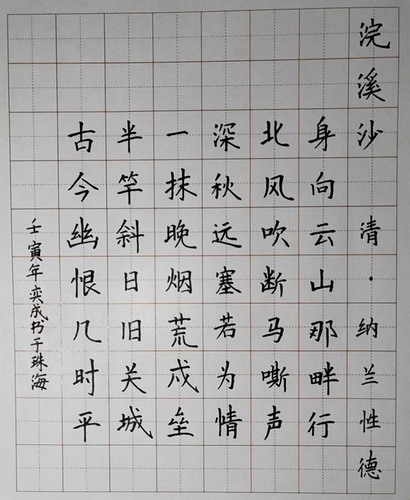 浣溪沙 清·纳兰性德
身向云山那畔行
北风吹断马嘶声
深秋远塞若为情
一抹晚烟荒戍垒
半竿斜日旧关城
古今幽恨几时平
壬寅年奕成书于珠海